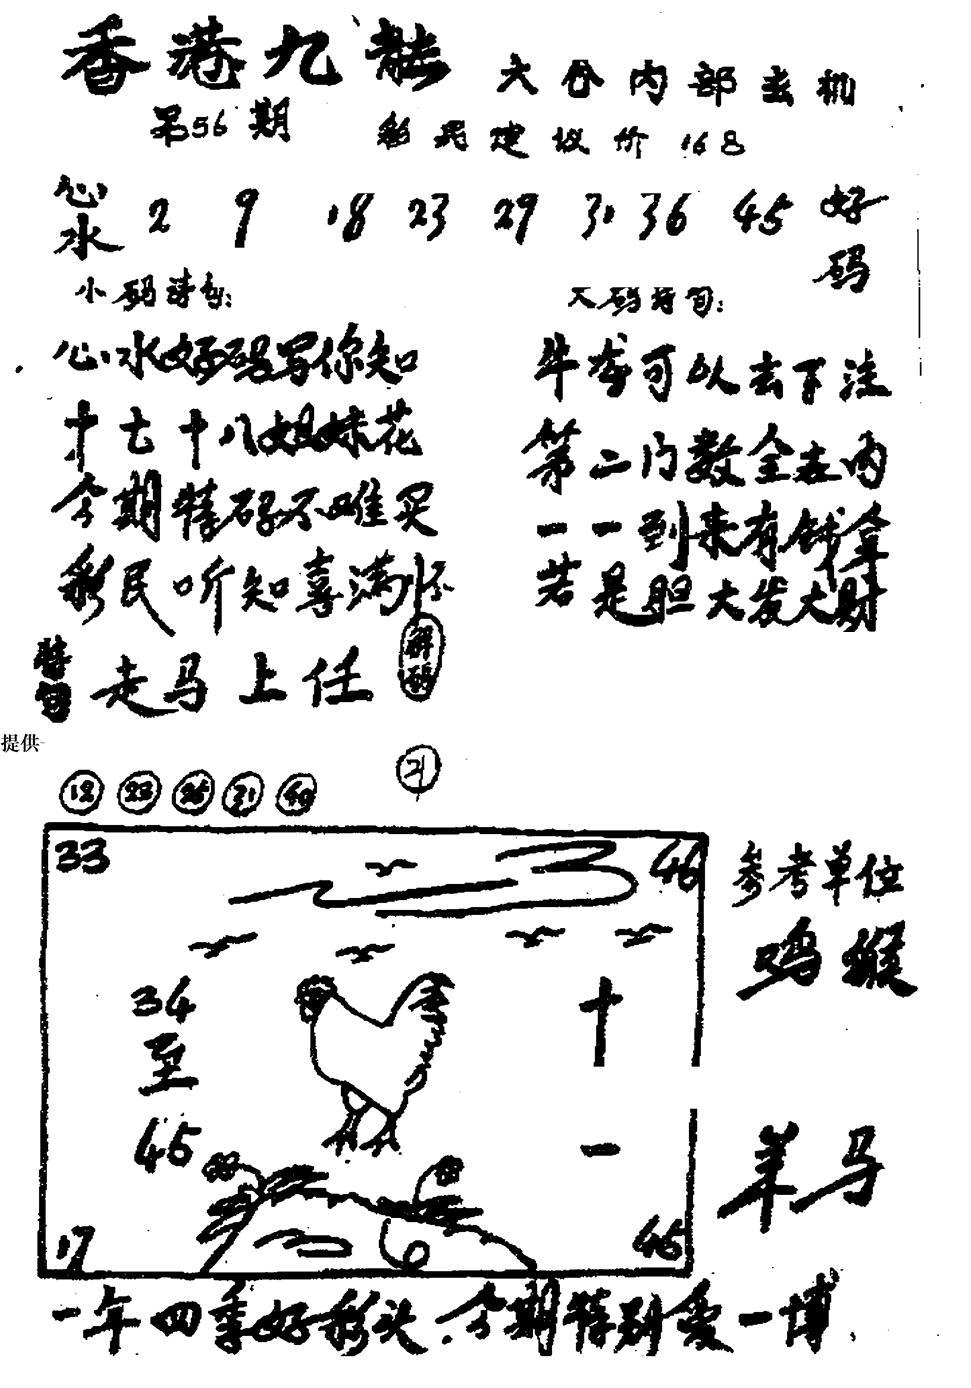 香港九龙
大谷内部玄机
第56期
彩民建议价168
心水
2 9 18 23 29 31 36 45
好码
小码诗句:
大码诗句:
心水好码写你知
十七十八姐妹花
今期特码不难买
彩民听知喜满怀
牛龙可以去下注
第二门数全在内
一一到来有钱拿
若是胆大发大财
特句
走马上任
解码
提供
12 23 25 31 40
21
33
46
34
至
45
十
一
17
45
参考单位
鸡猴
羊马
一年四季好彩头.今期特别爱一博